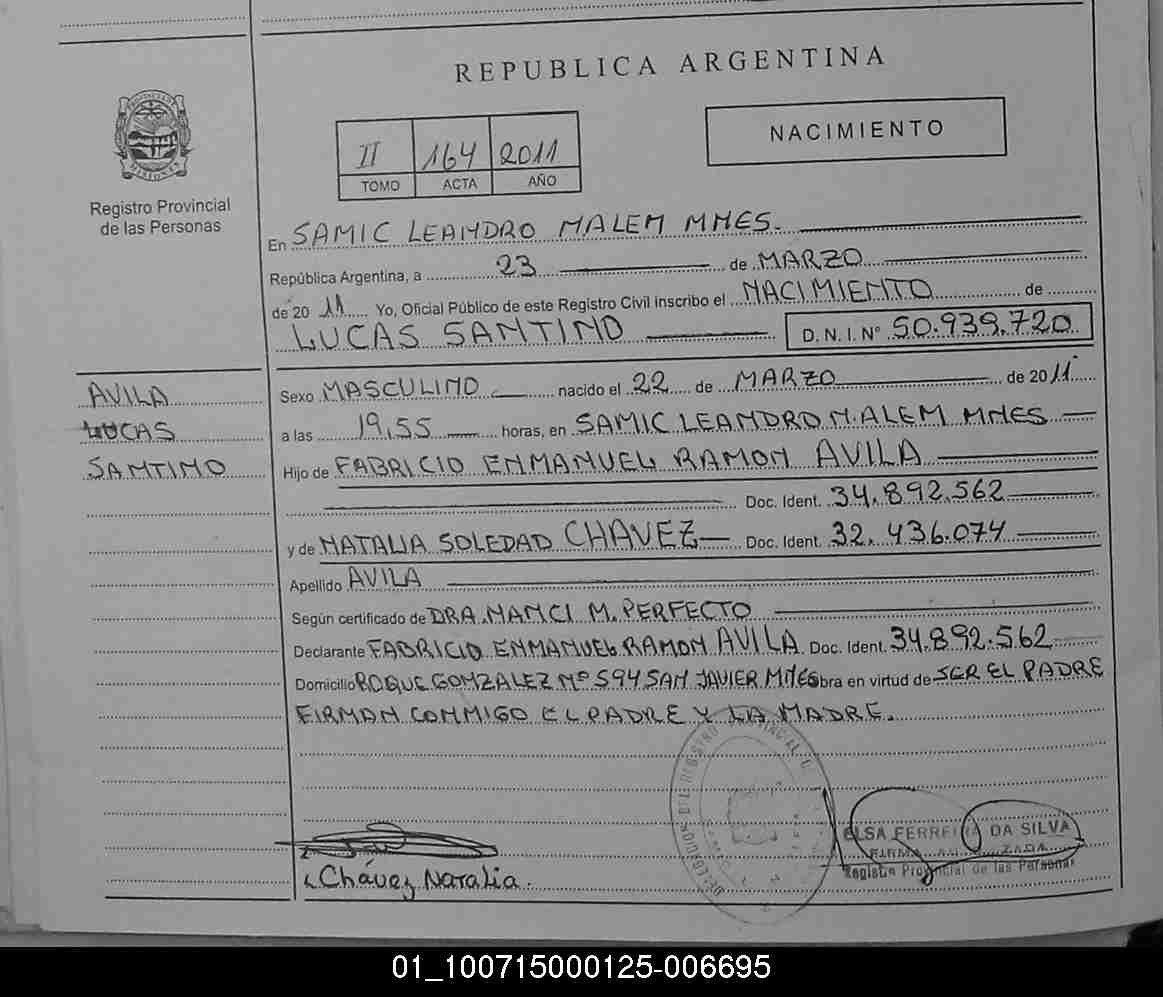 REPUBLICA ARGENTINA
NACIMIENTO
II 164 2011
TOMO ACTA AÑO
Registro Provincial
de las Personas
En SAMIC LEANDRO N ALEM MNES.
República Argentina, a 23 de MARZO
de 2011 Yo, Oficial Público de este Registro Civil inscribo el NACIMIENTO de
LUCAS SANTINO D. N. I. Nº 50.939.720
AVILA
LUCAS
SANTINO
Sexo MASCULINO nacido el 22 de MARZO de 2011
a las 19,55 horas, en SAMIC LEANDRO N. ALEM MNES
Hijo de FABRICIO ENMANUEL RAMON AVILA
Doc. Ident. 34.892.562
y de NATALIA SOLEDAD CHAVEZ Doc. Ident. 32.436.074
Apellido AVILA
Según certificado de DRA. NANCI M. PERFECTO
Declarante FABRICIO ENMANUEL RAMON AVILA. Doc. Ident. 34.892.562
Domicilio ROQUE GONZALEZ Nº 594 SAN JAVIER MNES Obra en virtud de SER EL PADRE
FIRMAN CONMIGO EL PADRE Y LA MADRE.
Chávez Natalia.
ELSA FERREIRA DA SILVA
FIRMA
Registro Provincial de las Personas
01_100715000125-006695